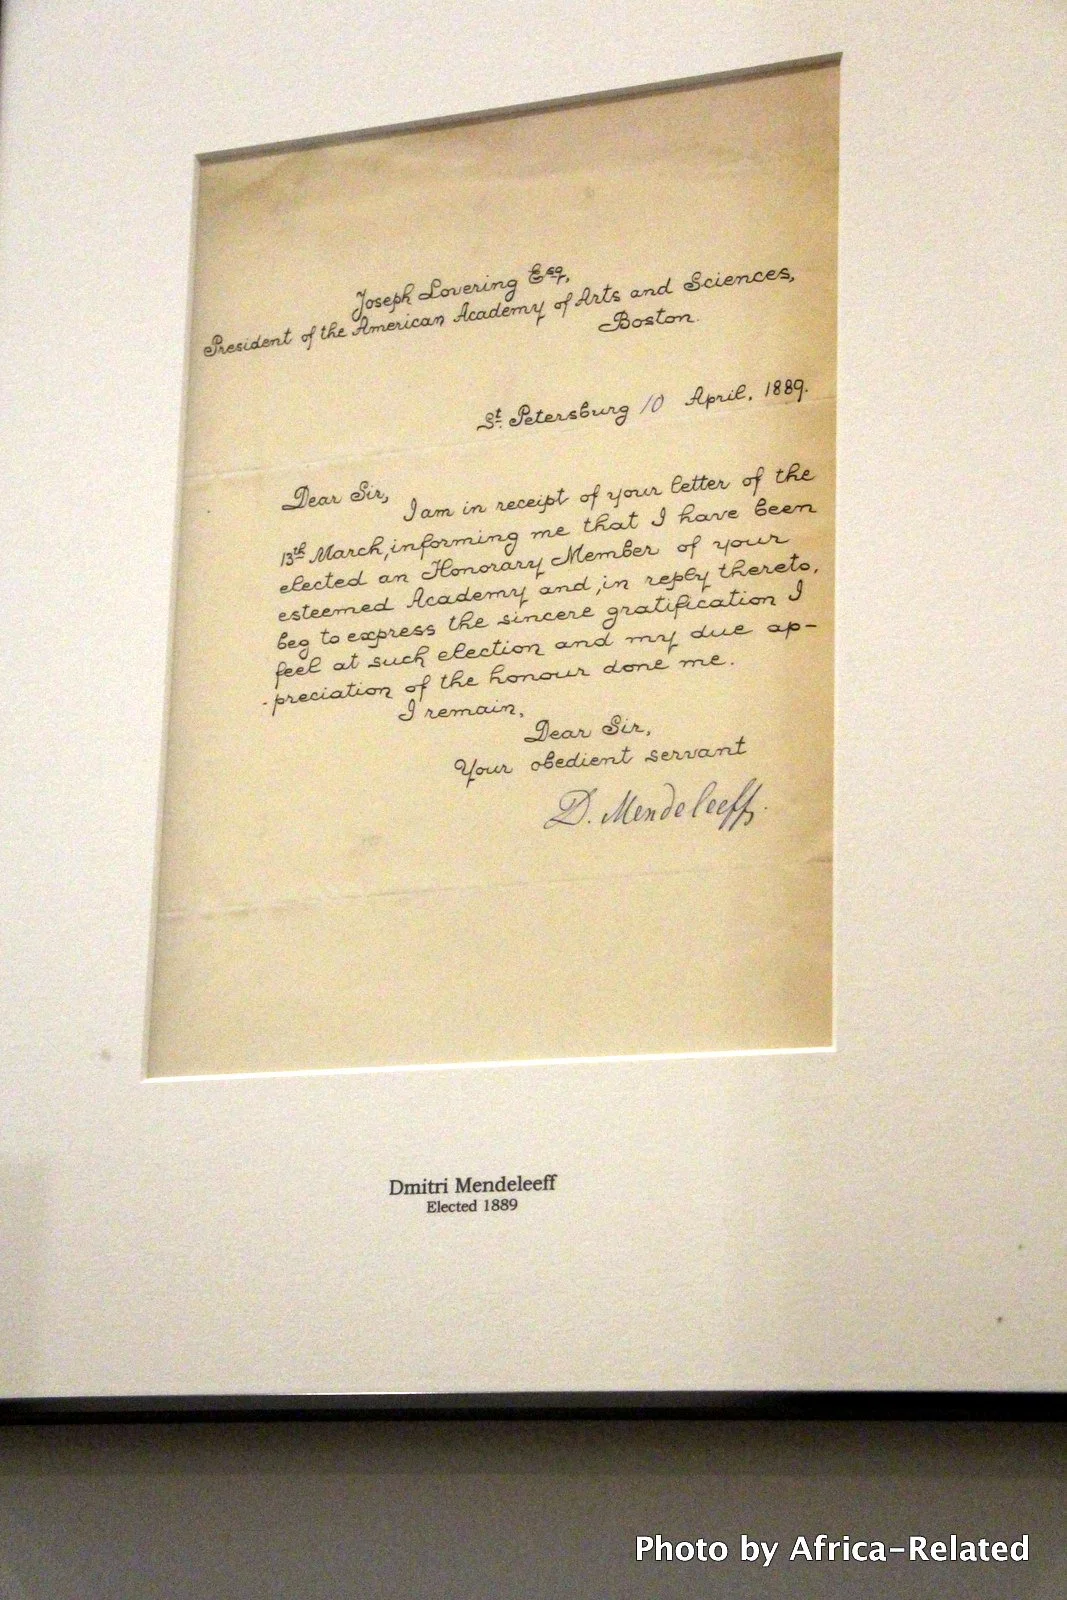 Joseph Lovering Esq,
President of the American Academy of Arts and Sciences,
Boston.
St. Petersburg 10 April, 1889.
Dear Sir,
I am in receipt of your letter of the
13th March, informing me that I have been
elected an Honorary Member of your
esteemed Academy and, in reply thereto,
beg to express the sincere gratification I
feel at such election and my due ap-
-preciation of the honour done me.
I remain,
Dear Sir,
Your obedient servant
D. Mendeleeff.
Dmitri Mendeleeff
Elected 1889
Photo by Africa-Related